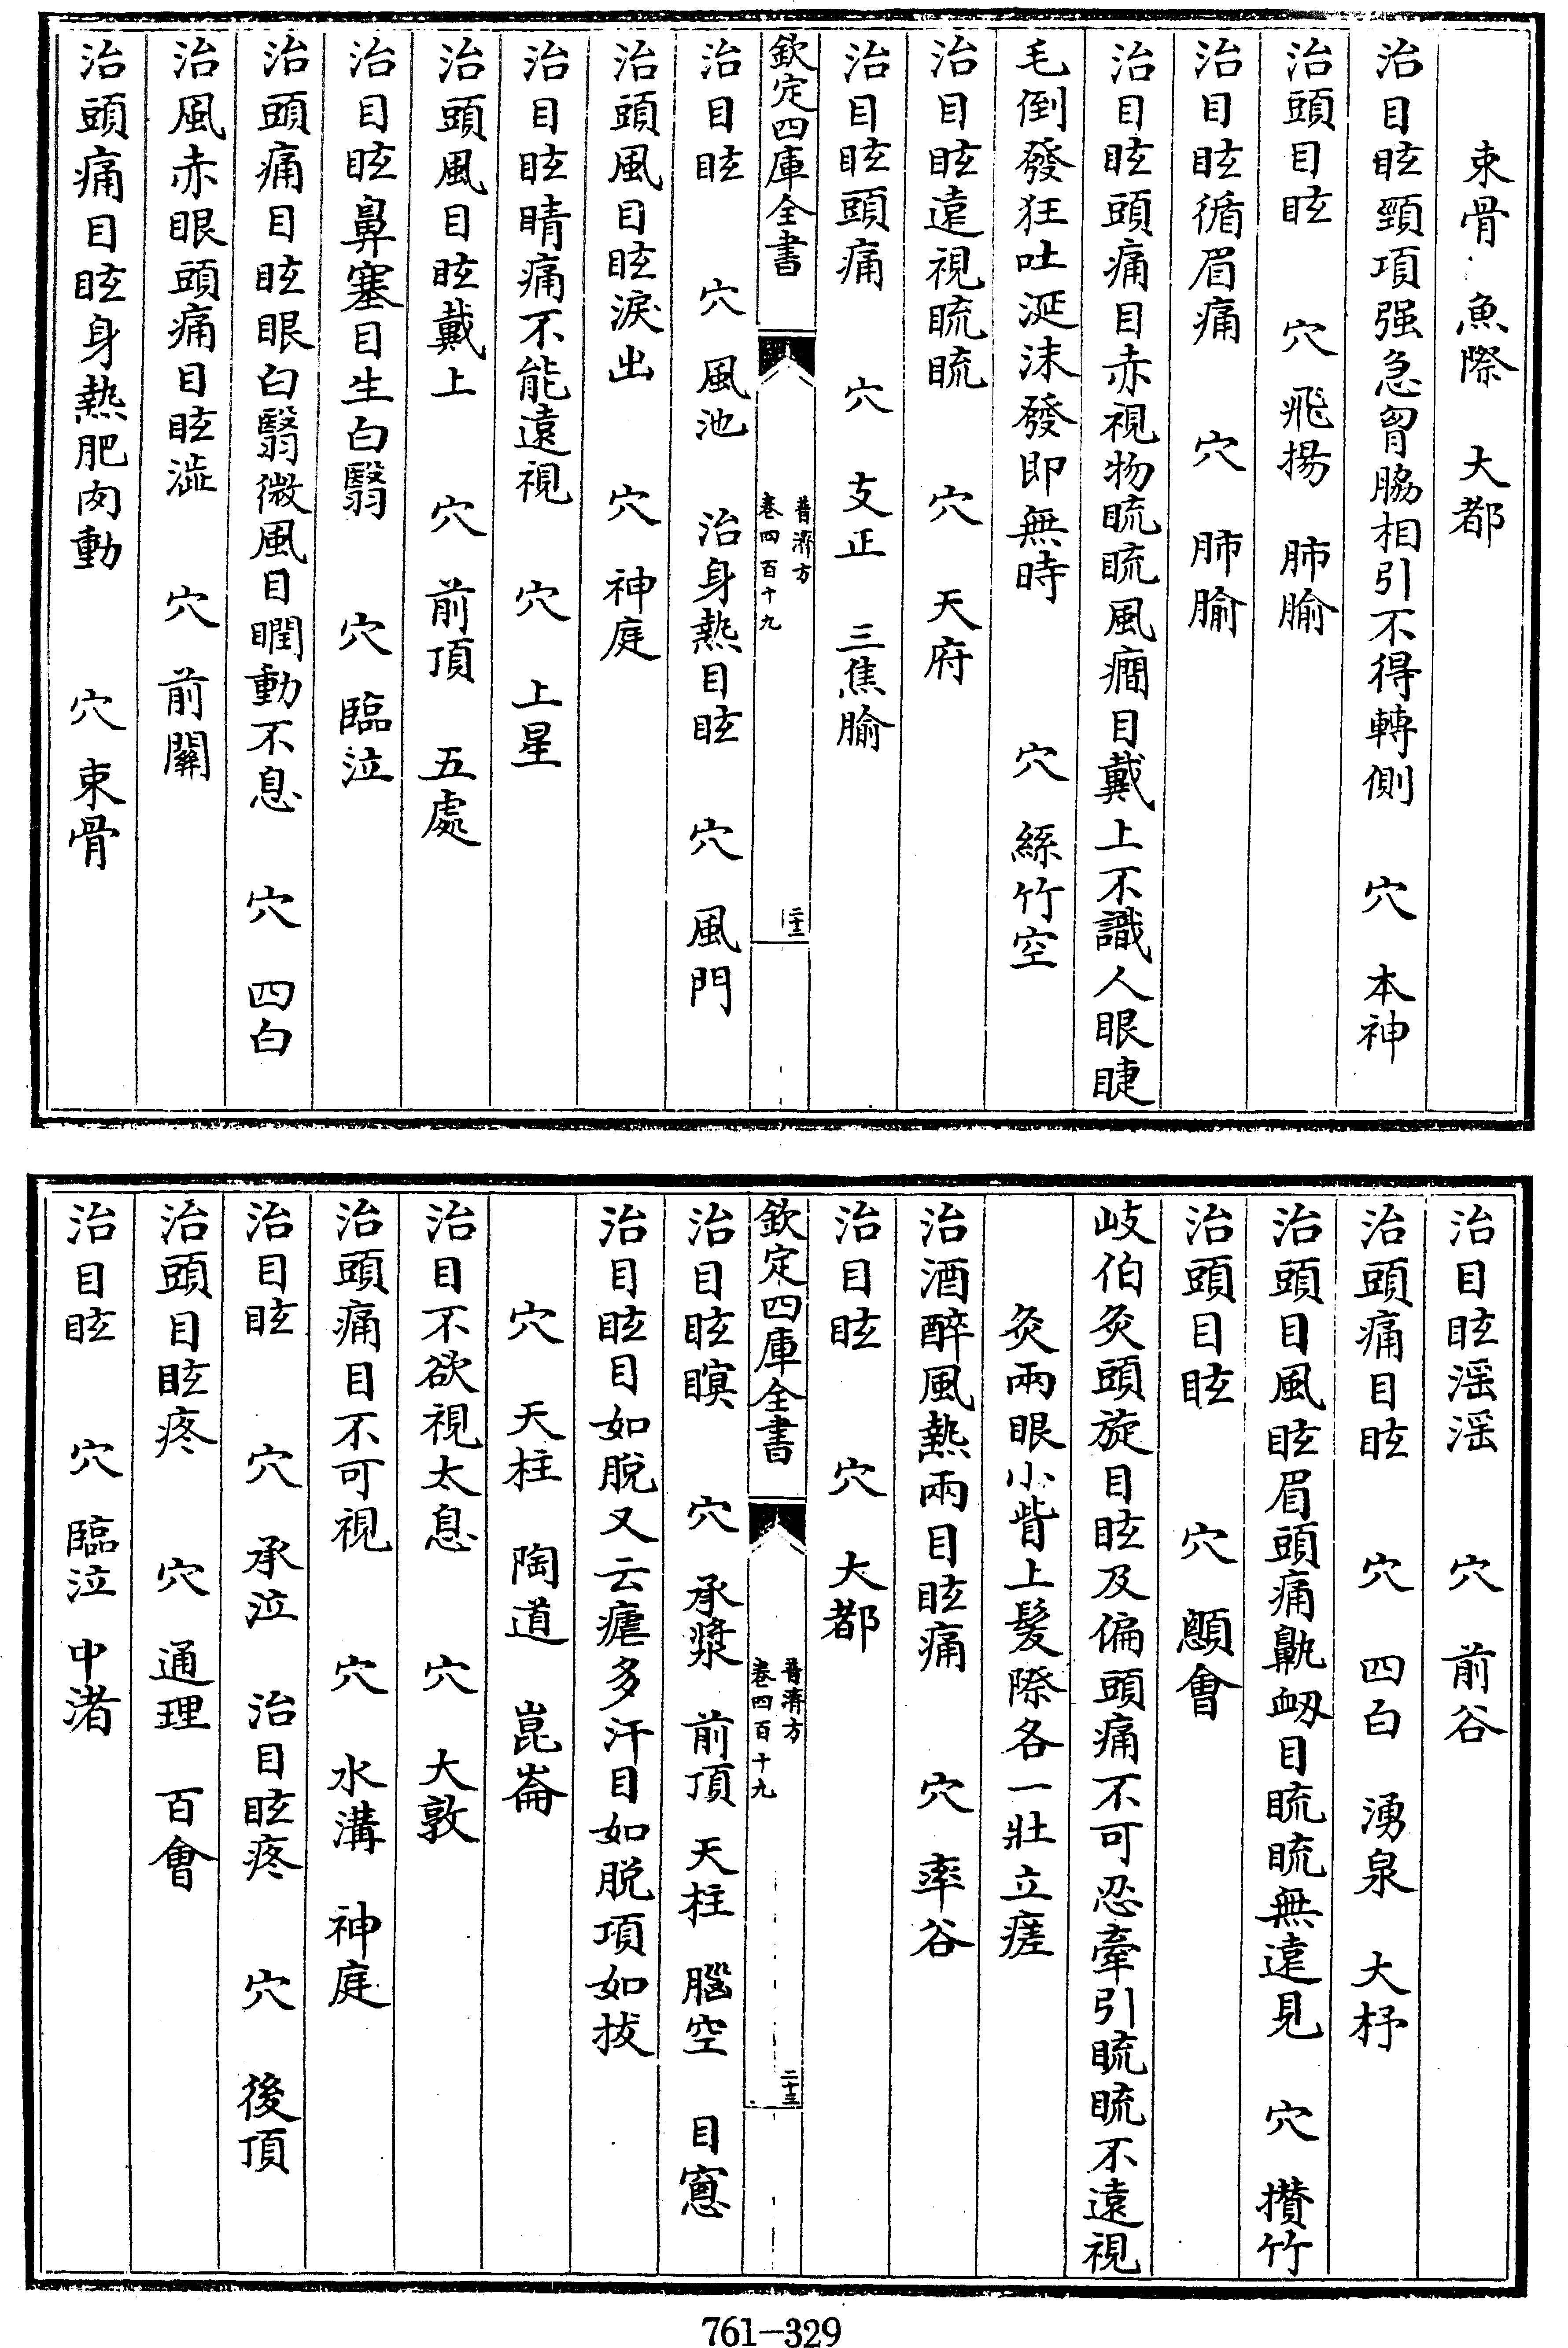 束骨　魚際　大都
治目眩頸項强急胷脇相引不得轉側　穴　本神
治頭目眩　穴　飛揚　肺腧
治目眩循眉痛　穴　肺腧
治目眩頭痛目赤視物䀮䀮風癎目戴上不識人眼睫
毛倒發狂吐涎沫發即無時　穴　絲竹空
治目眩遠視䀮䀮　穴　天府
治目眩頭痛　穴　支正　三焦腧
欽定四庫全書　普濟方　卷四百十九　二十二
治目眩　穴　風池　治身熱目眩　穴　風門
治頭風目眩淚出　穴　神庭
治目眩睛痛不能遠視　穴　上星
治頭風目眩戴上　穴　前頂　五處
治目眩鼻塞目生白翳　穴　臨泣
治頭痛目眩眼白翳微風目瞤動不息　穴　四白
治風赤眼頭痛目眩澁　穴　前關
治頭痛目眩身熱肥肉動　穴　束骨
治目眩滛滛　穴　前谷
治頭痛目眩　穴　四白　湧泉　大杼
治頭目風眩眉頭痛鼽衂目䀮䀮無遠見　穴　攅竹
治頭目眩　穴　顖會
岐伯灸頭旋目眩及偏頭痛不可忍牽引䀮䀮不遠視
灸兩眼小眥上髮際各一壯立瘥
治酒醉風熱兩目眩痛　穴　率谷
治目眩　穴　大都
欽定四庫全書　普濟方　卷四百十九　二十三
治目眩瞑　穴　承漿　前頂　天柱　腦空　目窻
治目眩目如脱又云瘧多汗目如脱項如拔
穴　天柱　陶道　崑崙
治目不欲視太息　穴　大敦
治頭痛目不可視　穴　水溝　神庭
治目眩　穴　承泣　治目眩疼　穴　後頂
治頭目眩疼　穴　通理　百會
治目眩　穴　臨泣　中渚
761-329